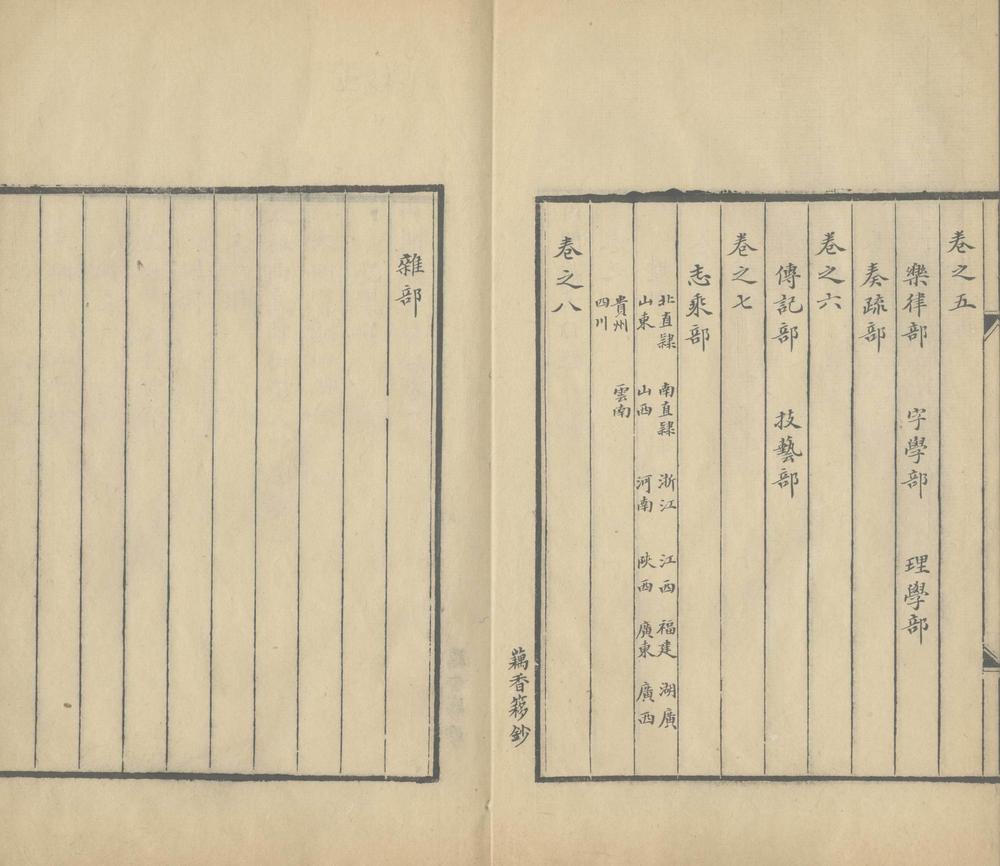 卷之五
樂律部 字學部 理學部
奏疏部
卷之六
傳記部 技藝部
卷之七
志乘部
北直隸 南直隸 浙江 江西 福建 湖廣
山東 山西 河南 陝西 廣東 廣西
貴州 雲南
四川
卷之八
藕香簃鈔
雜部